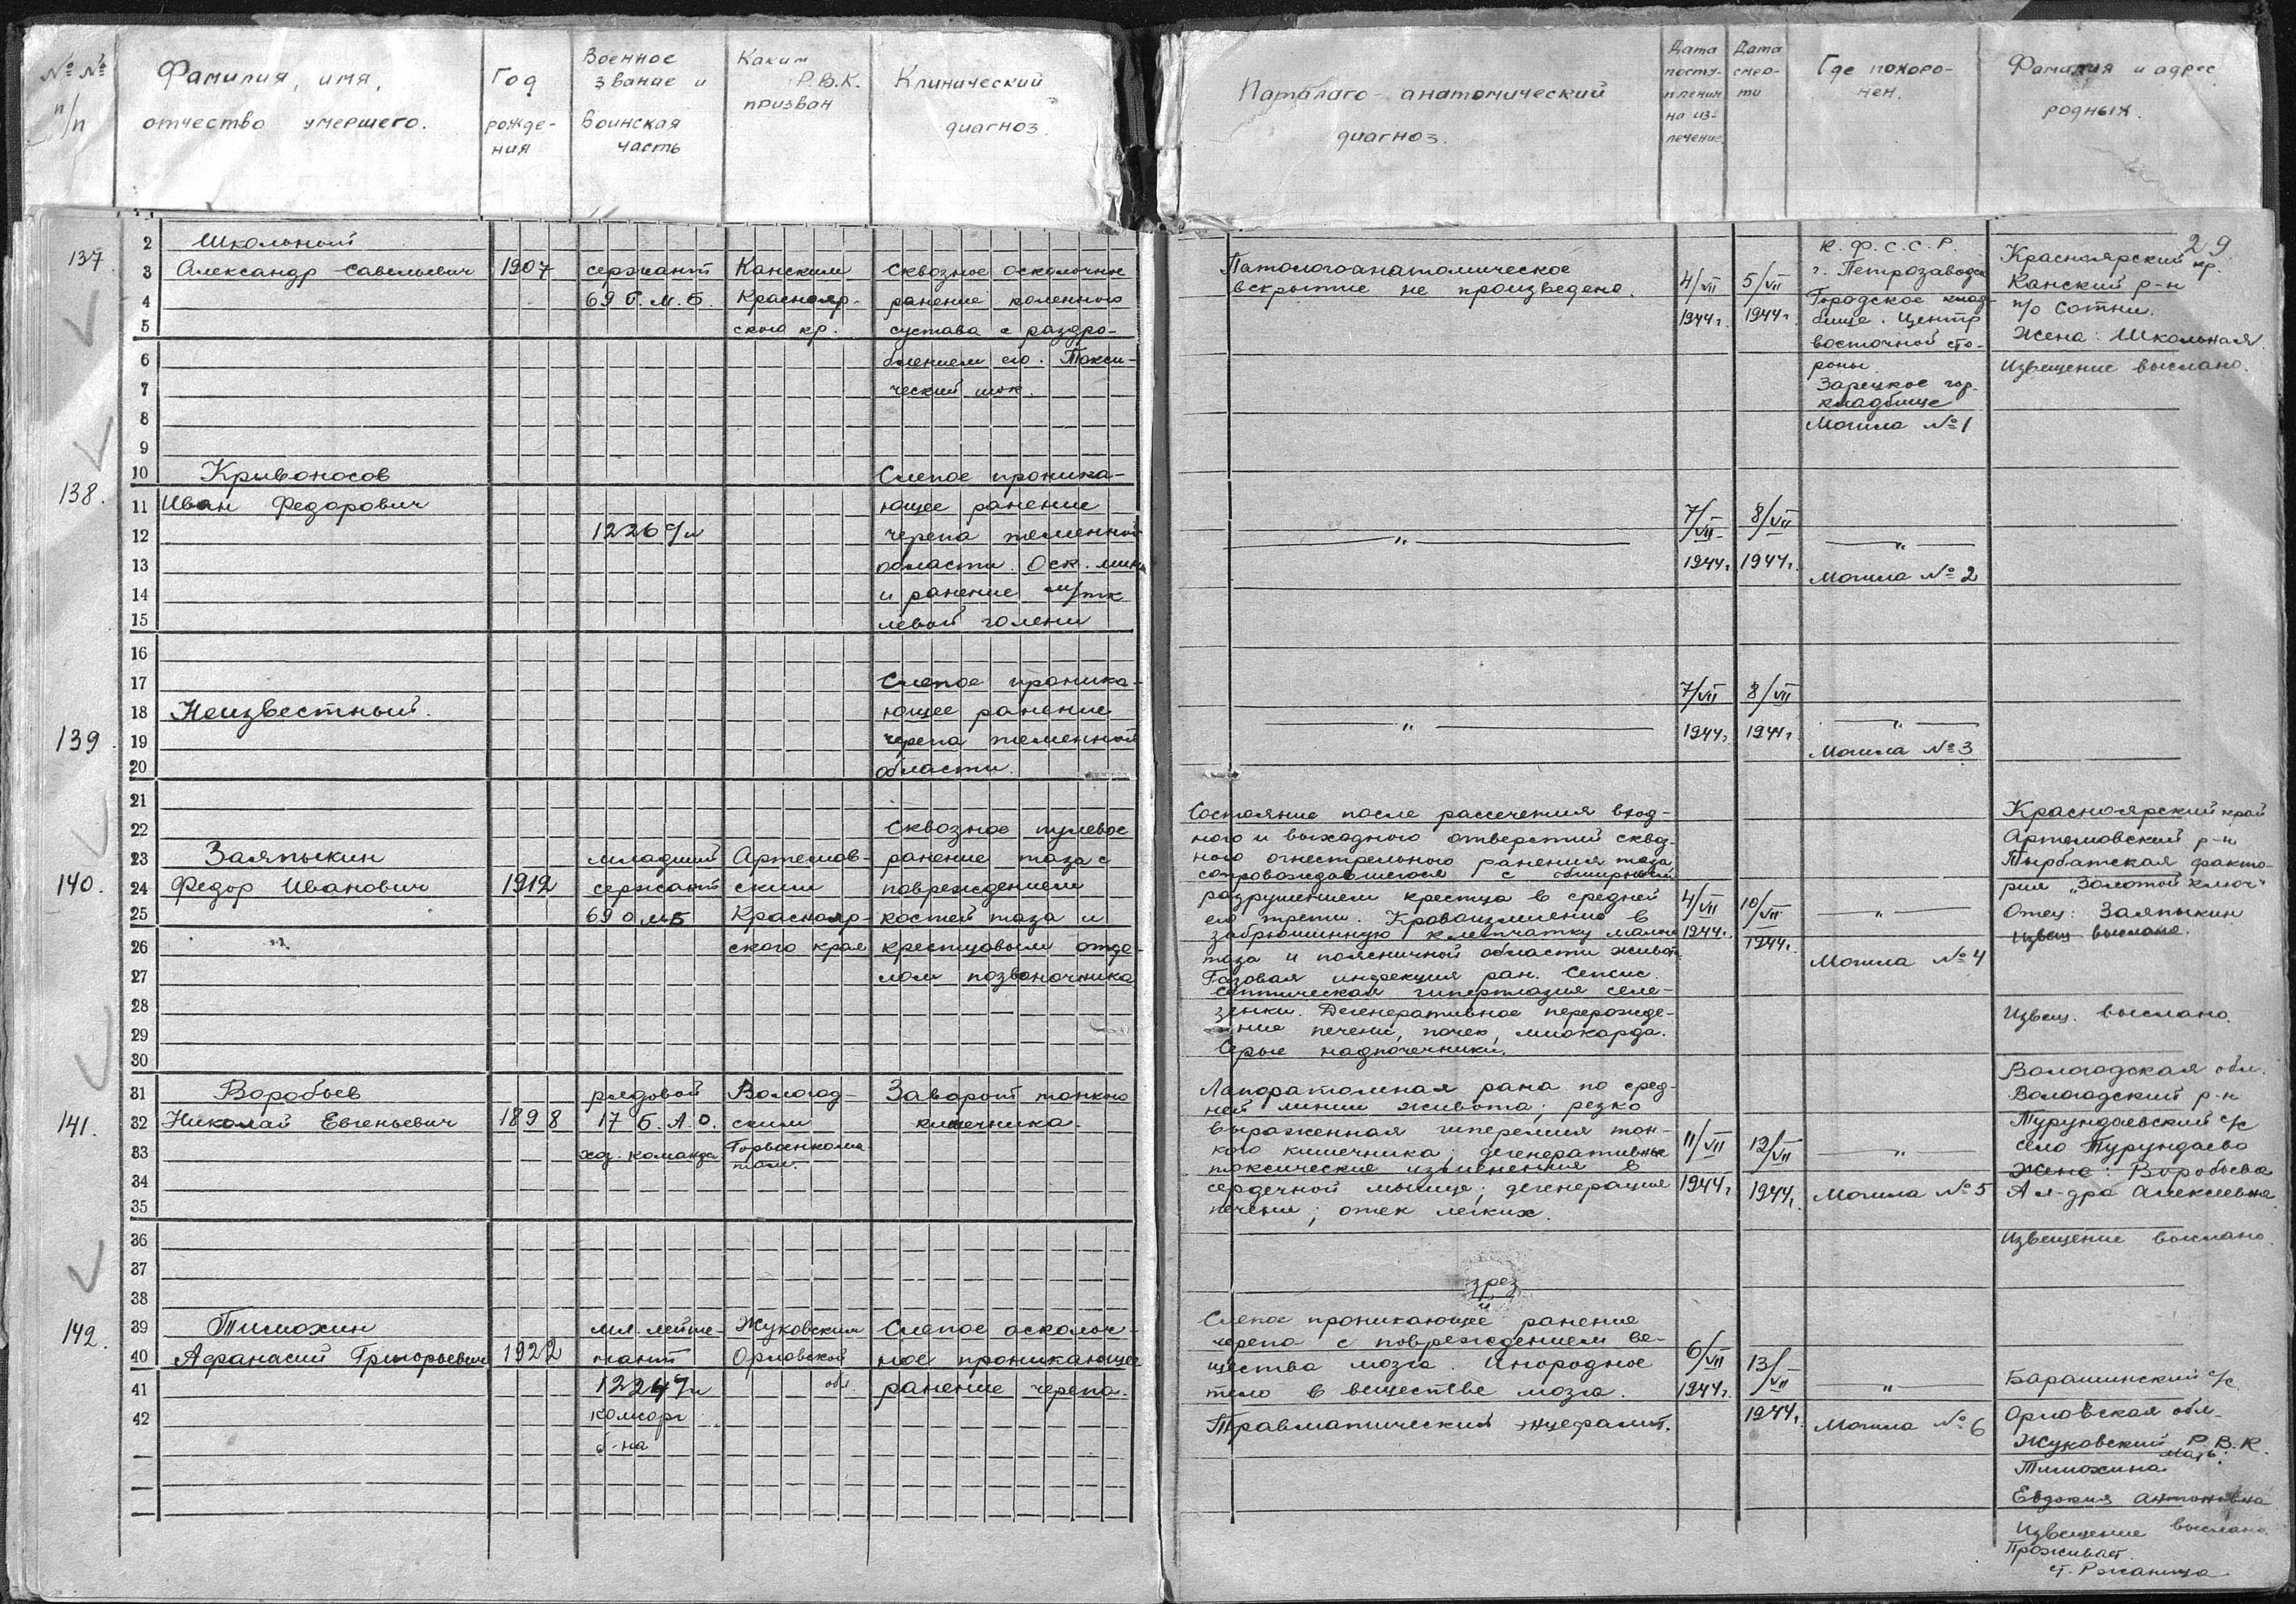 № № п/п
Фамилия, имя, отчество умершего.
Год рождения
Военное звание и воинская часть
Каким Р.В.К. призван
Клинический диагноз.
Паталаго-анатомический диагноз.
Дата поступления на излечение
Дата смерти
Где похоронен.
Фамилия и адрес родных.
29
137.
Школьный
Александр Савельевич
1907
сержант
69 О.М.Б.
Канским
Краснояр-
ского кр.
Сквозное осколочное
ранение коленного
сустава с раздро-
блением его. Токси-
ческий шок.
Патологоанатомическое
вскрытие не произведено.
4/VII
1944г.
5/VII
1944г
К.Ф.С.С.Р.
г. Петрозаводск
Городское клад-
бище. Центр
восточной сто-
роны.
Зарецкое гор.
кладбище
Могила №1
Красноярский кр.
Канский р-н
п/о Сотни.
Жена: Школьная.
Извещение выслано.
138.
Кривоносов
Иван Федорович
1226 с/п
Слепое проника-
ющее ранение
черепа теменной
области. Оск. мины
и ранение м/тк
левой голени
— " —
7/VII
1944г.
8/VII
1944г.
— " —
Могила №2
139.
Неизвестный.
Слепое проника-
ющее ранение
черепа теменной
области.
— " —
7/VII
1944г.
8/VII
1944г.
— " —
Могила №3
140.
Заяпыкин
Федор Иванович
1912
младший
сержант
69 о мБ
Артемов-
ским
Краснояр-
ского края
Сквозное пулевое
ранение таза с
повреждением
костей таза и
крестцовым отде-
лом позвоночника
Состояние после рассечения вход-
ного и выходного отверстий сквоз-
ного огнестрельного ранения таза
сопровождавшегося с обширным
разрушением крестца в средней
его трети. Кровоизлияние в
забрюшинную клетчатку малого
таза и поясничной области живота.
Газовая инфекция ран. Сепсис.
Септическая гиперплазия селе-
зенки. Дегенеративное перерожде-
ние печени, почек, миокарда.
Серые надпочечники.
4/VII
1944г.
10/VII
1944г.
— " —
Могила №4
Красноярский край
Артемовский р-н
Тырбатская факто-
рия „Золотой Ключ"
Отец: Заяпыкин
Извещ. выслано.
Извещ. выслано.
141.
Воробьев
Николай Евгеньевич
1898
рядовой
17 Б.А.О.
хоз. команда
Вологод-
ским
Горвоенкома-
том.
Заворот тонкого
кишечника.
Лапоратомная рана по сред-
ней линии живота; резко
выраженная гиперемия тон-
кого кишечника; дегенеративные
токсические изменения в
сердечной мышце; дегенерация
печени; отек легких.
11/VII
1944г.
12/VII
1944г.
— " —
Могила №5
Вологодская обл.
Вологодский р-н
Турундаевский с/с
село Турундаево
Жена: Воробьева
Ал-дра Алексеевна.
Извещение выслано.
142.
Тимохин
Афанасий Григорьевич
1922
мл. лейте-
нант
1224 с/п
комсорг
б-на
Жуковским
Орловской
обл.
Слепое осколоч-
ное проникающее
ранение черепа.
Слепое проникающее ранение
черепа с повреждением ве-
щества мозга. Инородное
тело в веществе мозга.
Травматический энцефалит.
6/VII
1944г.
13/VII
1944г.
— " —
Могила №6
Барашинский с/с
Орловская обл.
Жуковский Р.В.К.
Мать:
Тимохина
Евдокия Антоновна
Извещение выслано.
Проживает.
ст. Ржаница
2
3
4
5
6
7
8
9
10
11
12
13
14
15
16
17
18
19
20
21
22
23
24
25
26
27
28
29
30
31
32
33
34
35
36
37
38
39
40
41
42